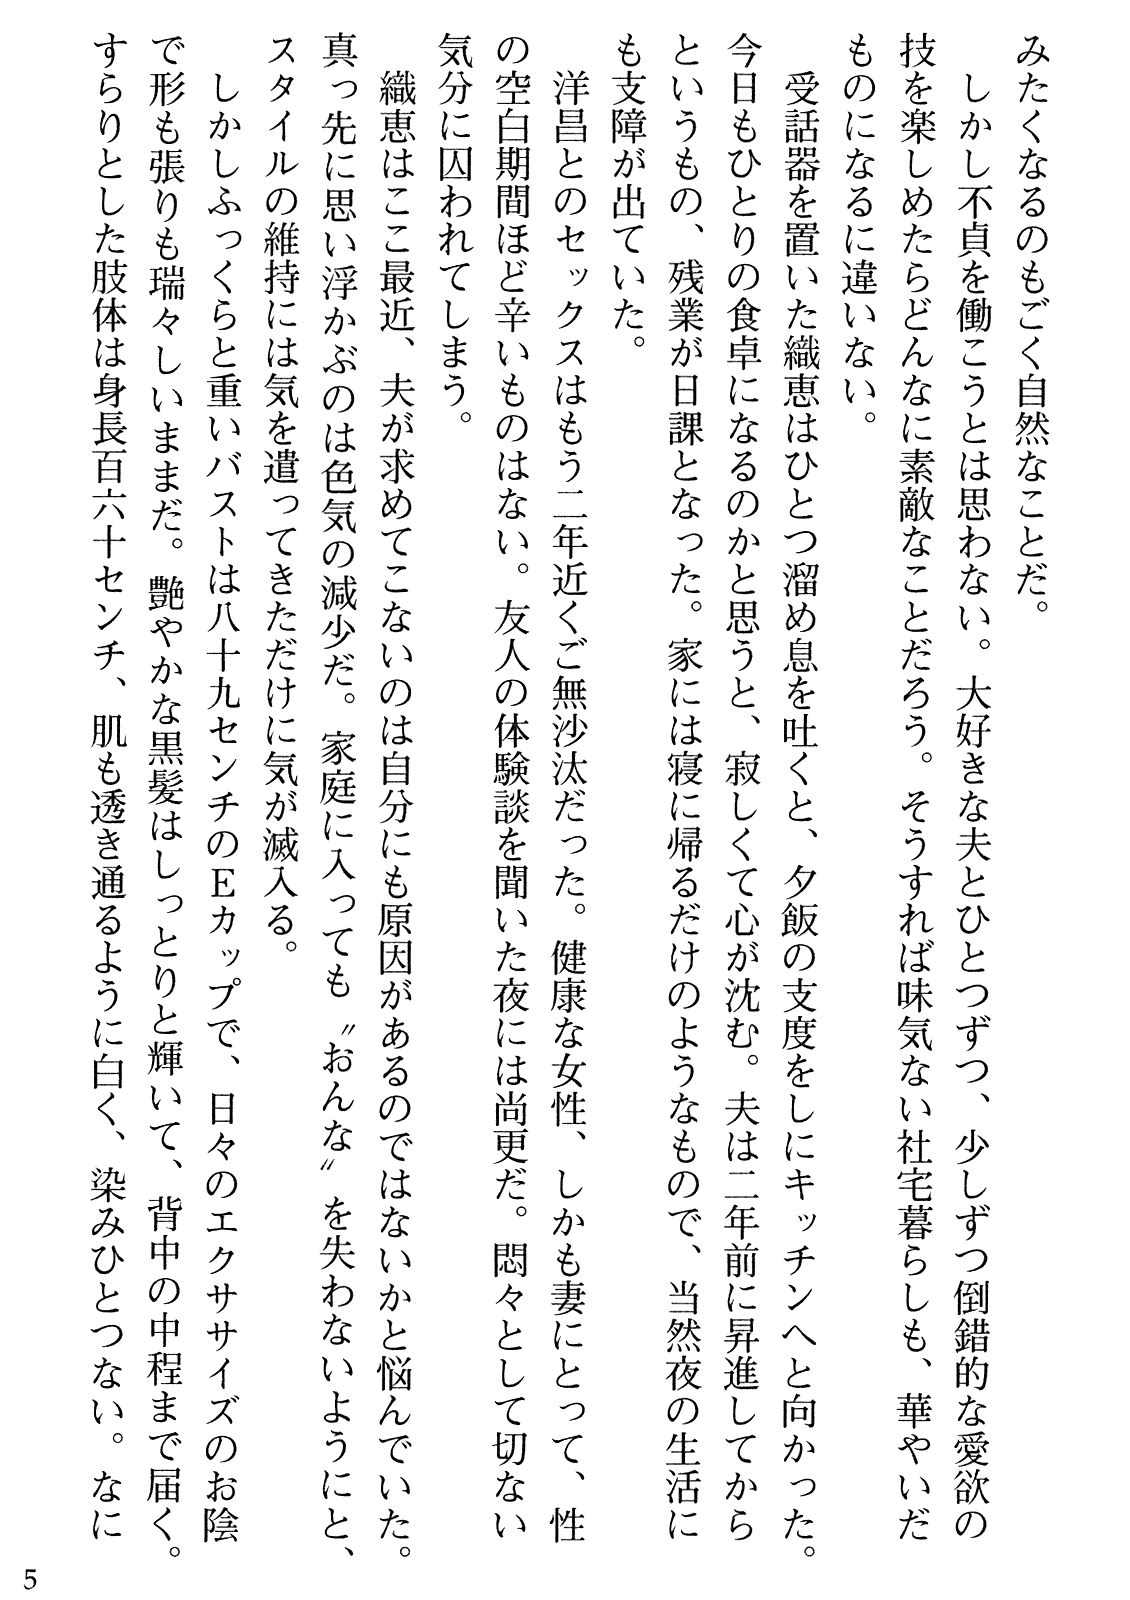 みたくなるのもごく自然なことだ。
しかし不貞を働こうとは思わない。大好きな夫とひとつずつ、少しずつ倒錯的な愛欲の
技を楽しめたらどんなに素敵なことだろう。そうすれば味気ない社宅暮らしも、華やいだ
ものになるに違いない。
受話器を置いた織恵はひとつ溜め息を吐くと、夕飯の支度をしにキッチンへと向かった。
今日もひとりの食卓になるのかと思うと、寂しくて心が沈む。夫は二年前に昇進してから
というもの、残業が日課となった。家には寝に帰るだけのようなもので、当然夜の生活に
も支障が出ていた。
洋昌とのセックスはもう二年近くご無沙汰だった。健康な女性、しかも妻にとって、性
の空白期間ほど辛いものはない。友人の体験談を聞いた夜には尚更だ。悶々として切ない
気分に囚われてしまう。
織恵はここ最近、夫が求めてこないのは自分にも原因があるのではないかと悩んでいた。
真っ先に思い浮かぶのは色気の減少だ。家庭に入っても〝おんな〟を失わないようにと、
スタイルの維持には気を遣ってきただけに気が滅入る。
しかしふっくらと重いバストは八十九センチのEカップで、日々のエクササイズのお陰
で形も張りも瑞々しいままだ。艶やかな黒髪はしっとりと輝いて、背中の中程まで届く。
すらりとした肢体は身長百六十センチ、肌も透き通るように白く、染みひとつない。なに
5